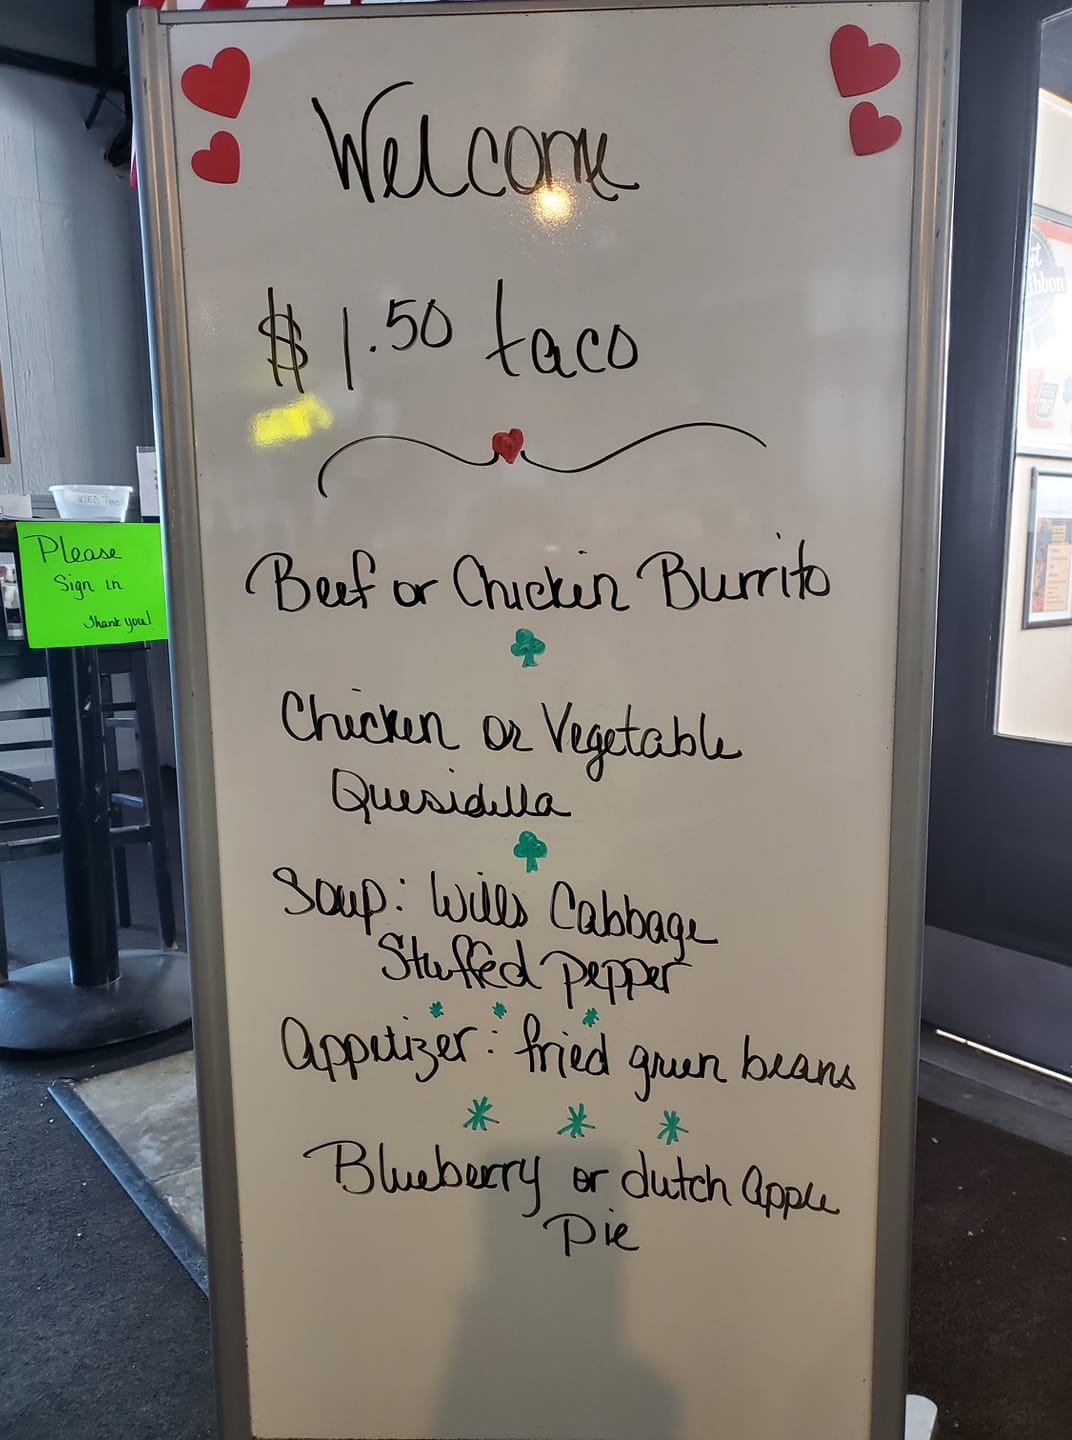 Welcome
$1.50 taco
Beef or Chicken Burrito
Chicken or Vegetable
Quesidilla
Soup: Wills Cabbage
Stuffed pepper
Appetizer: fried green beans
Blueberry or dutch apple
Pie
Please
Sign in
Thank you!
USED
ibbon